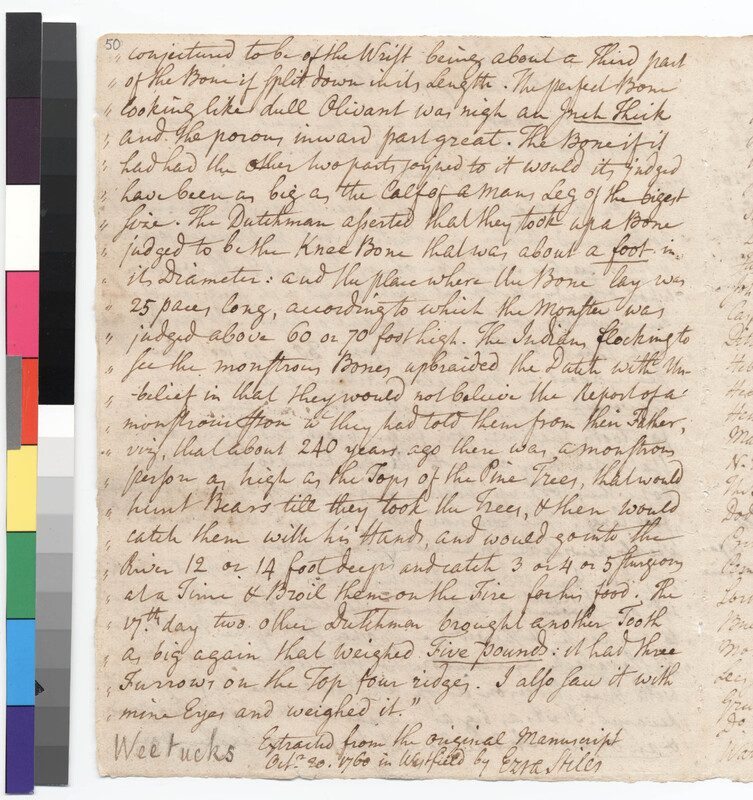 50
" conjectured to be of the Wrist being about a Third part
" of the Bone if split down in its Length. The perfect Bone
" looking like dull Olivant was nigh an Inch Thick
" and the porous inward part great. The Bone if it
" had had the other two parts joyned to it would its judged
" have been as big as the Calf of a Mans Leg of the bigest
" Size. The Dutchman asserted that they took up a Bone
" judged to be the Knee Bone that was about a foot in
" its Diameter: and the place where the Bone lay was
" 25 paces long, according to which the Monster was
" judged above 60 or 70 foot high. The Indians flocking to
" see the monstrous Bones upbraided the Dutch with Un-
" -belief in that they would not beleive the Report of a
" monstrous p̱son wc they had told them from their Father,
" viz, that about 240 years ago there was a monstrous
" person as high as the Tops of the Pine Trees, that would
" hunt Bears till they took the Trees, & then would
" catch them with his Hands, and would go into the
" River 12 or 14 foot deep and catch 3 or 4 or 5 Sturgeons
" at a Time & Broil them on the Fire for his food. The
" 17th day two other Dutchman brought another Tooth
" as big again that weighed Five pounds: it had three
" Furrows on the Top four ridges. I also saw it with
" mine Eyes and weighed it."
Weetucks
Extracted from the original Manuscript
Octr 20. 1760 in Westfield by Ezra Stiles